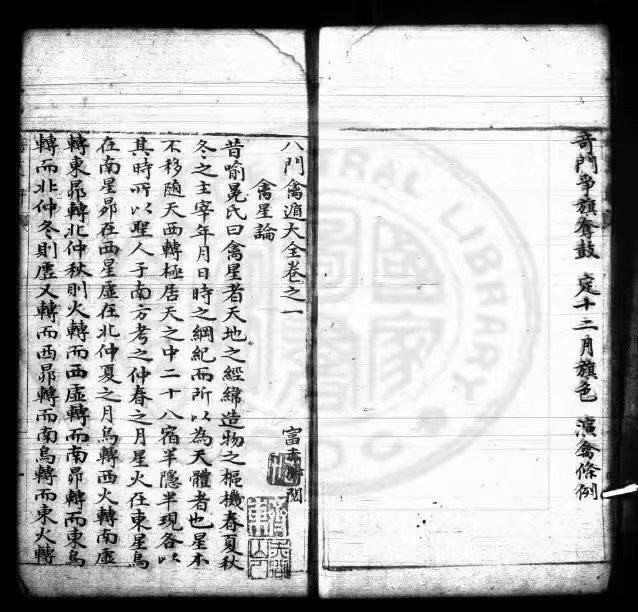 奇門爭旗奪鼓 定十二月旗色 演禽條例
八門禽遁大全卷之一
禽星論
昔喻晃氏曰禽星者天地之經緯造物之樞機春夏秋
冬之主宰年月日時之綱紀而所以為天體者也星本
不移隨天西轉極居天之中二十八宿半隱半現各以
其時所以聖人于南方考之仲春之月星火在東星鳥
在南星昴在西星虛在北仲夏之月鳥轉西火轉南虛
轉東昴轉北仲秋則火轉而西虛轉而南昴轉而東鳥
轉而北仲冬則虛又轉而西昴轉而南鳥轉而東火轉